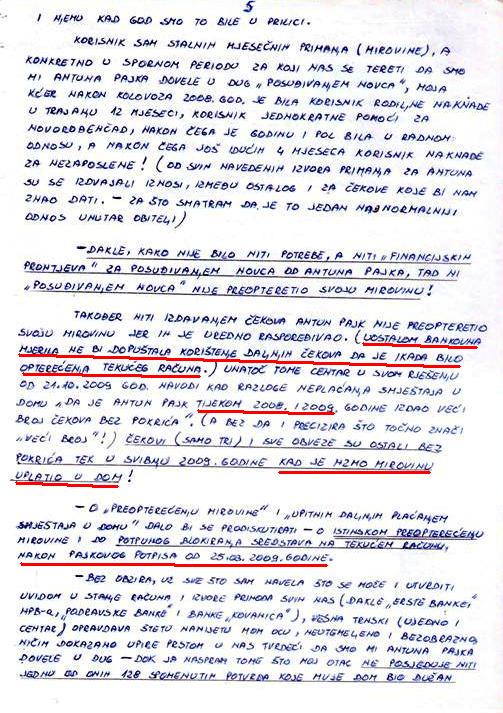 5
I NJEMU KAD GOD SMO TO BILE U PRILICI.
KORISNIK SAM STALNIH MJESEČNIH PRIMANJA (MIROVINE), A
KONKRETNO U SPORNOM PERIODU ZA KOJI NAS SE TERETI DA SMO
MI ANTUNA PAJKA DOVELE U DUG „POSUĐIVANJEM NOVCA", MOJA
KĆER NAKON KOLOVOZA 2008. GOD. JE BILA KORISNIK RODILJNE NAKNADE
U TRAJANJU 12 MJESECI, KORISNIK JEDNOKRATNE POMOĆI ZA
NOVOROĐENČAD, NAKON ČEGA JE GODINU I POL BILA U RADNOM
ODNOSU, A NAKON ČEGA JOŠ IDUĆIH 4 MJESECA KORISNIK NAKNADE
ZA NEZAPOSLENE! (OD SVIH NAVEDENIH IZVORA PRIMANJA ZA ANTUNA
SU SE IZDVAJALI IZNOSI, IZMEĐU OSTALOG I ZA ČEKOVE KOJE BI NAM
ZNAO DATI. - ZA ŠTO SMATRAM DA JE TO JEDAN NAJNORMALNIJI
ODNOS UNUTAR OBITELJI)
-DAKLE, KAKO NIJE BILO NITI POTREBE, A NITI „FINANCIJSKIH
PROHTJEVA" ZA POSUĐIVANJEM NOVCA OD ANTUNA PAJKA, TAD NI
„POSUĐIVANJEM NOVCA" NIJE PREOPTERETIO SVOJU MIROVINU!
TAKOĐER NITI IZDAVANJEM ČEKOVA ANTUN PAJK NIJE PREOPTERETIO
SVOJU MIROVINU JER IH JE UREDNO RASPOREĐIVAO. (UOSTALOM BANKOVNA
MJERILA NE BI DOPUŠTALA KORIŠTENJE DALJNJIH ČEKOVA DA JE IKADA BILO
OPTEREĆENJA TEKUĆEG RAČUNA.) UNATOČ TOME CENTAR U SVOM RJEŠENJU
OD 21.10.2009 GOD. NAVODI KAO RAZLOGE NEPLAĆANJA SMJEŠTAJA U
DOMU „DA JE ANTUN PAJK TIJEKOM 2008. I 2009. GODINE IZDAO VEĆI
BROJ ČEKOVA BEZ POKRIĆA". (A BEZ DA I PRECIZIRA ŠTO TOČNO ZNAČI
„VEĆI BROJ"!) ČEKOVI (SAMO TRI) I SVE OBVEZE SU OSTALI BEZ
POKRIĆA TEK U SVIBNJU 2009. GODINE KAD JE HZMO MIROVINU
UPLATIO U DOM!
-O „PREOPTEREĆENJU MIROVINE" I „UPITNIM DALJNJIM PLAĆANJEM
SMJEŠTAJA U DOMU" DALO BI SE PRODISKUTIRATI - O ISTINSKOM PREOPTEREĆENJU
MIROVINE I DO POTPUNOG BLOKIRANJA SREDSTAVA NA TEKUĆEM RAČUNU,
NAKON PASKOVOG POTPISA OD 25.03.2009. GODINE.
-BEZ OBZIRA, UZ SVE ŠTO SAM NAVELA ŠTO SE MOŽE I UTVRDITI
UVIDOM U STANJE RAČUNA I IZVORE PRIHODA SVIH NAS (DAKLE „ERSTE BANKE",
HPB-a, „PODRAVSKE BANKE" I BANKE „KOVANICA"), VESNA TRNSKI (UJEDNO I
CENTAR) OPRAVDAVA ŠTETU NANIJETU MOM OCU, NEUTEMELJENO I BEZOBRAZNO,
NIČIM DOKAZANO UPIRE PRSTOM U NAS TVRDEĆI DA SMO MI ANTUNA PAJKA
DOVELE U DUG - DOK JA NASPRAM TOME ŠTO MOJ OTAC NE POSJEDUJE NITI
JEDNU OD ONIH 128 SPOMENUTIH POTVRDA KOJE MU JE DOM BIO DUŽAN